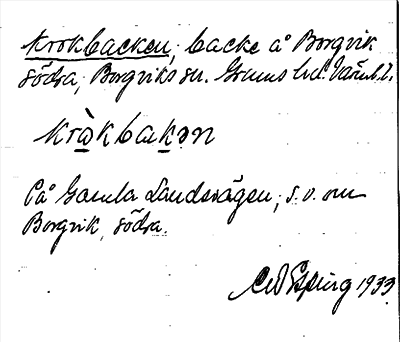 Krokbacken, backe å Borgvik
södra, Borgviks sn. Grums hd. Värml.
kròkbakən
På Gamla Landsvägen, s.o. om
Borgvik, södra.
1933